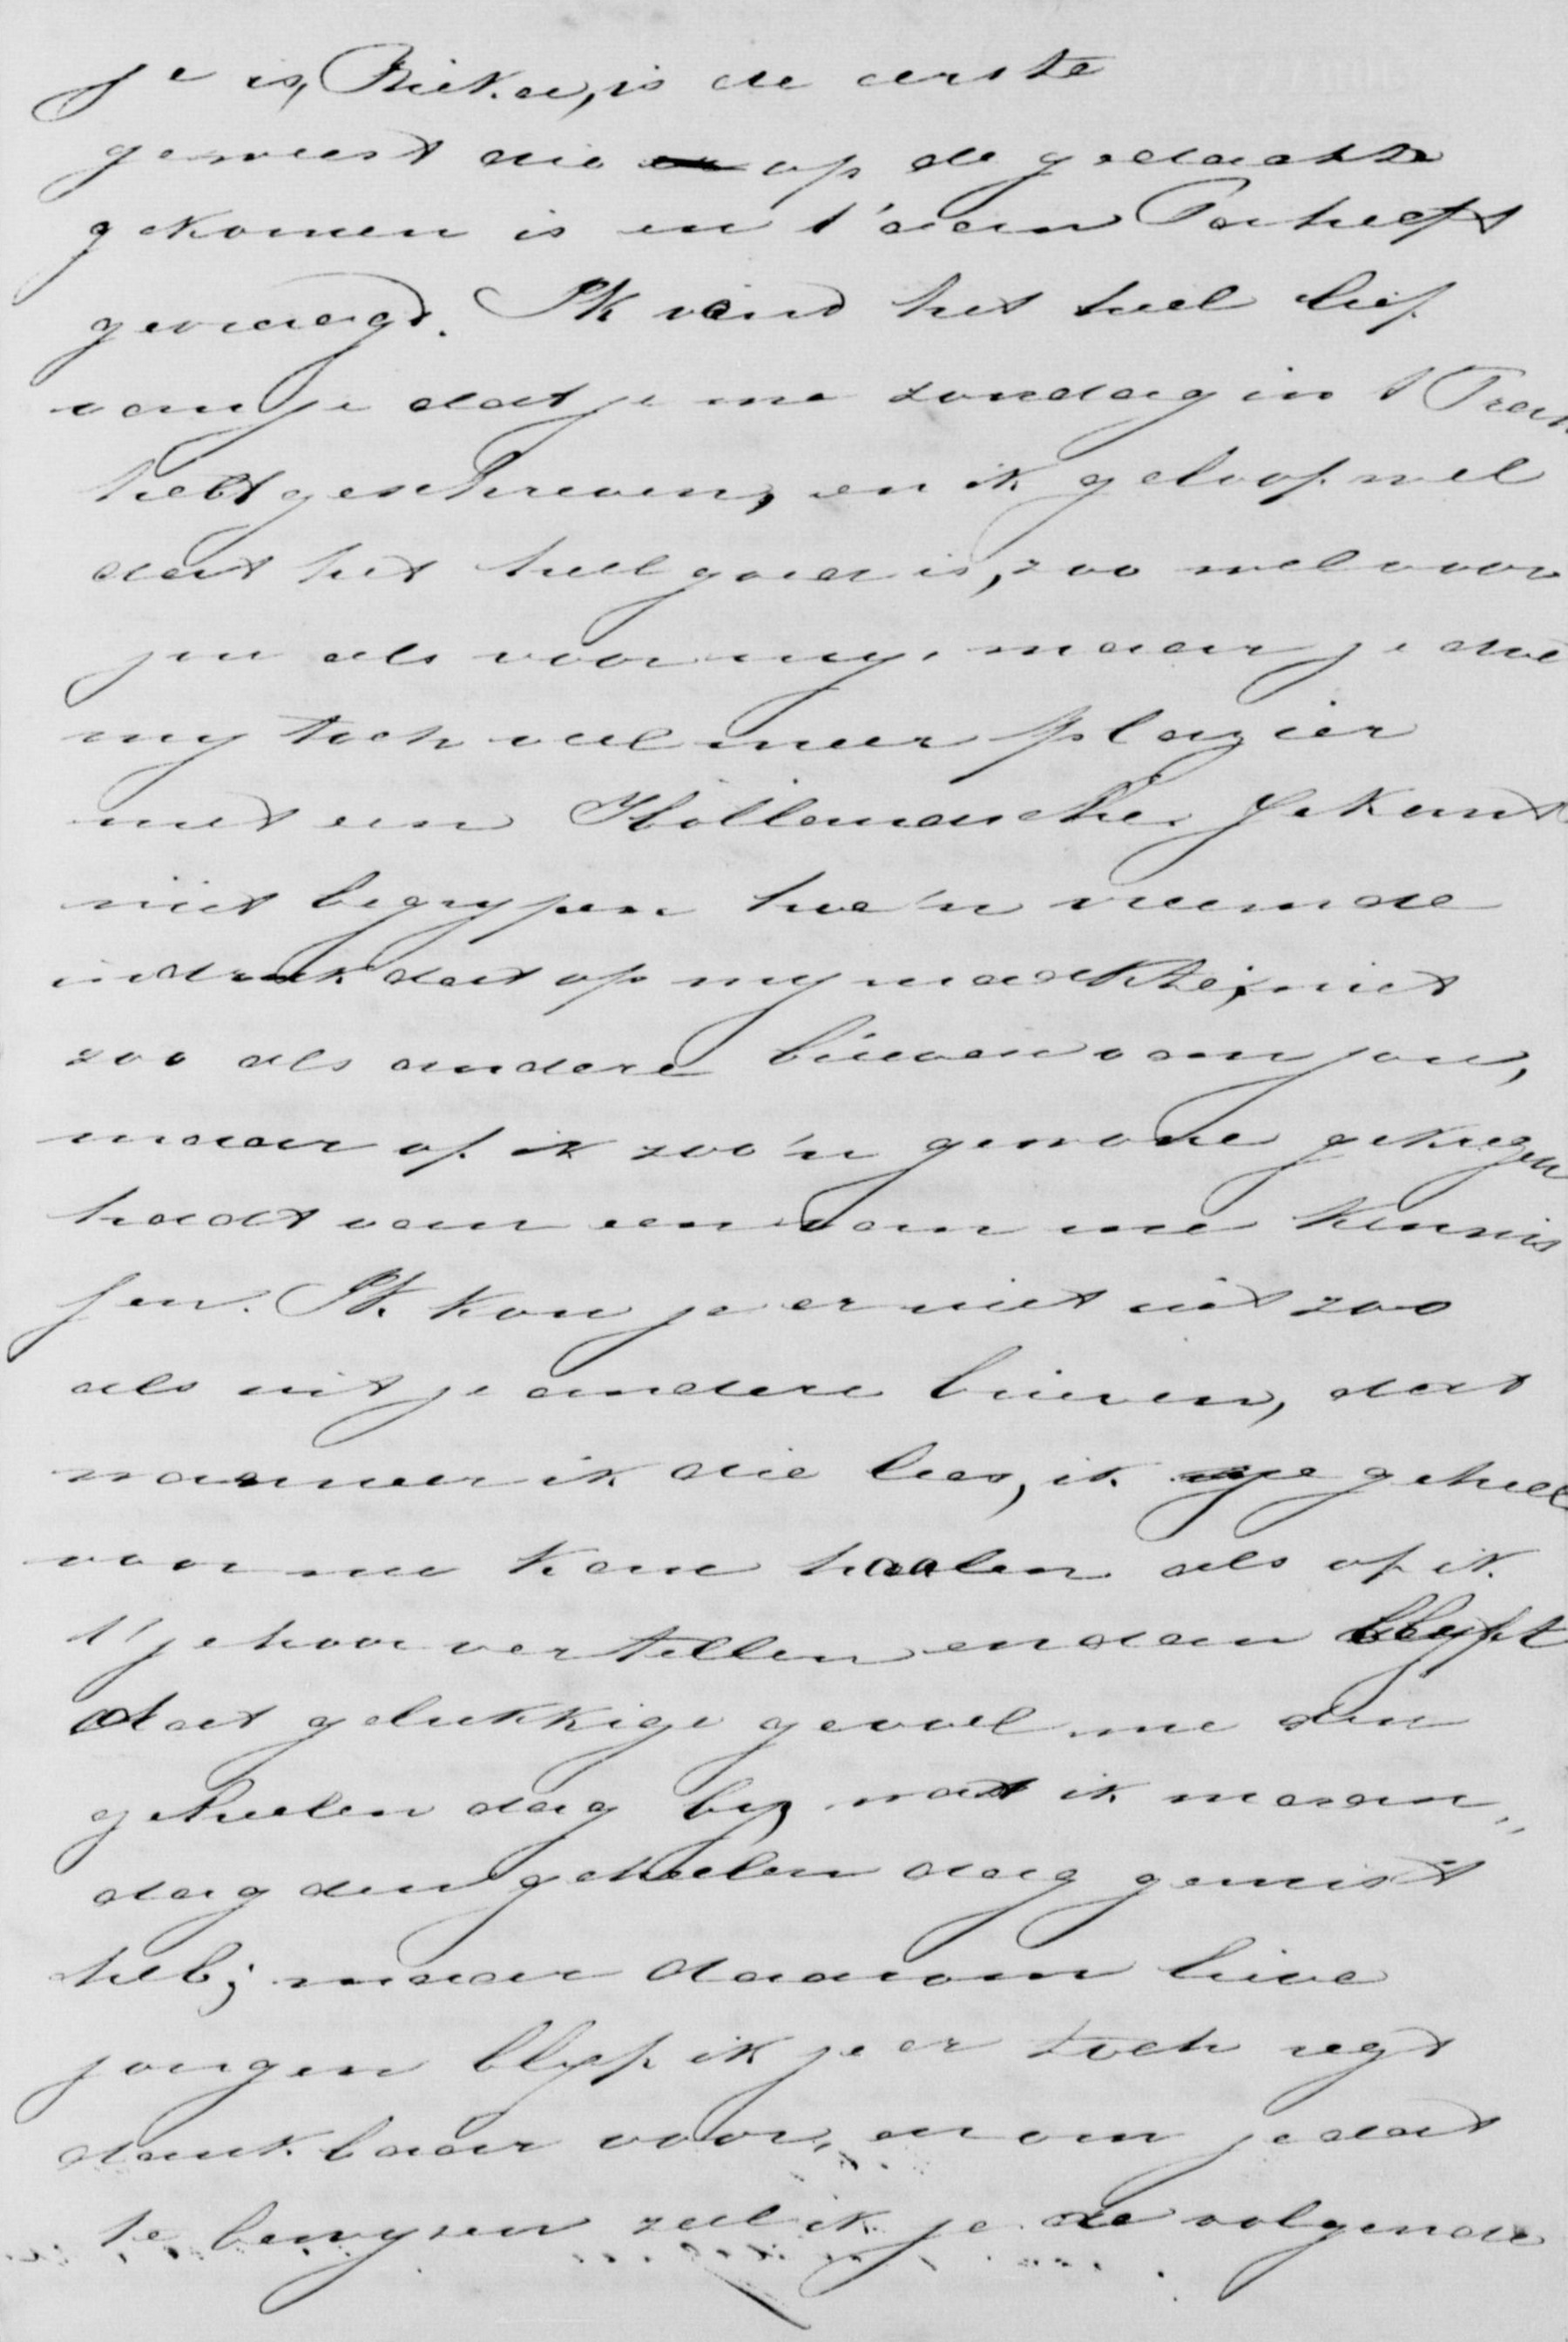 je is, Rieka, is de eerste
geweest die op de gedachte
gekomen is en t' aan Pa heeft
gevraagd. Ik vind het heel lief
van je dat je me zondag in t Fran
hebt geschreven, en ik geloof wel
dat het heel goed is, zoo wel voor
jou als voor my, maar je doe
my toch veel meer plazier
met een Hollandsche. Je kunt
niet begrypen hoe'n vreemde
indruk dat op my maakte, niet
zoo als andere brieven van jou,
maar of ik zoo'n gewone gekregen
hadt van een van me kennis
sen. Ik kon je er niet uit zoo
als uit je andere brieven, dat
wanneer ik die lees, ik je geheel
voor me kan haalen als of ik
t' je hoor vertellen en dan blyft
dat gelukkige gevoel me den
geheelen dag by, wat ik maan„
dag den geheelen dag gemist
heb; maar daarom lieve
jongen blyf ik je er toch regt
dankbaar voor, en om je dat
te bewyzen zal ik je de volgende